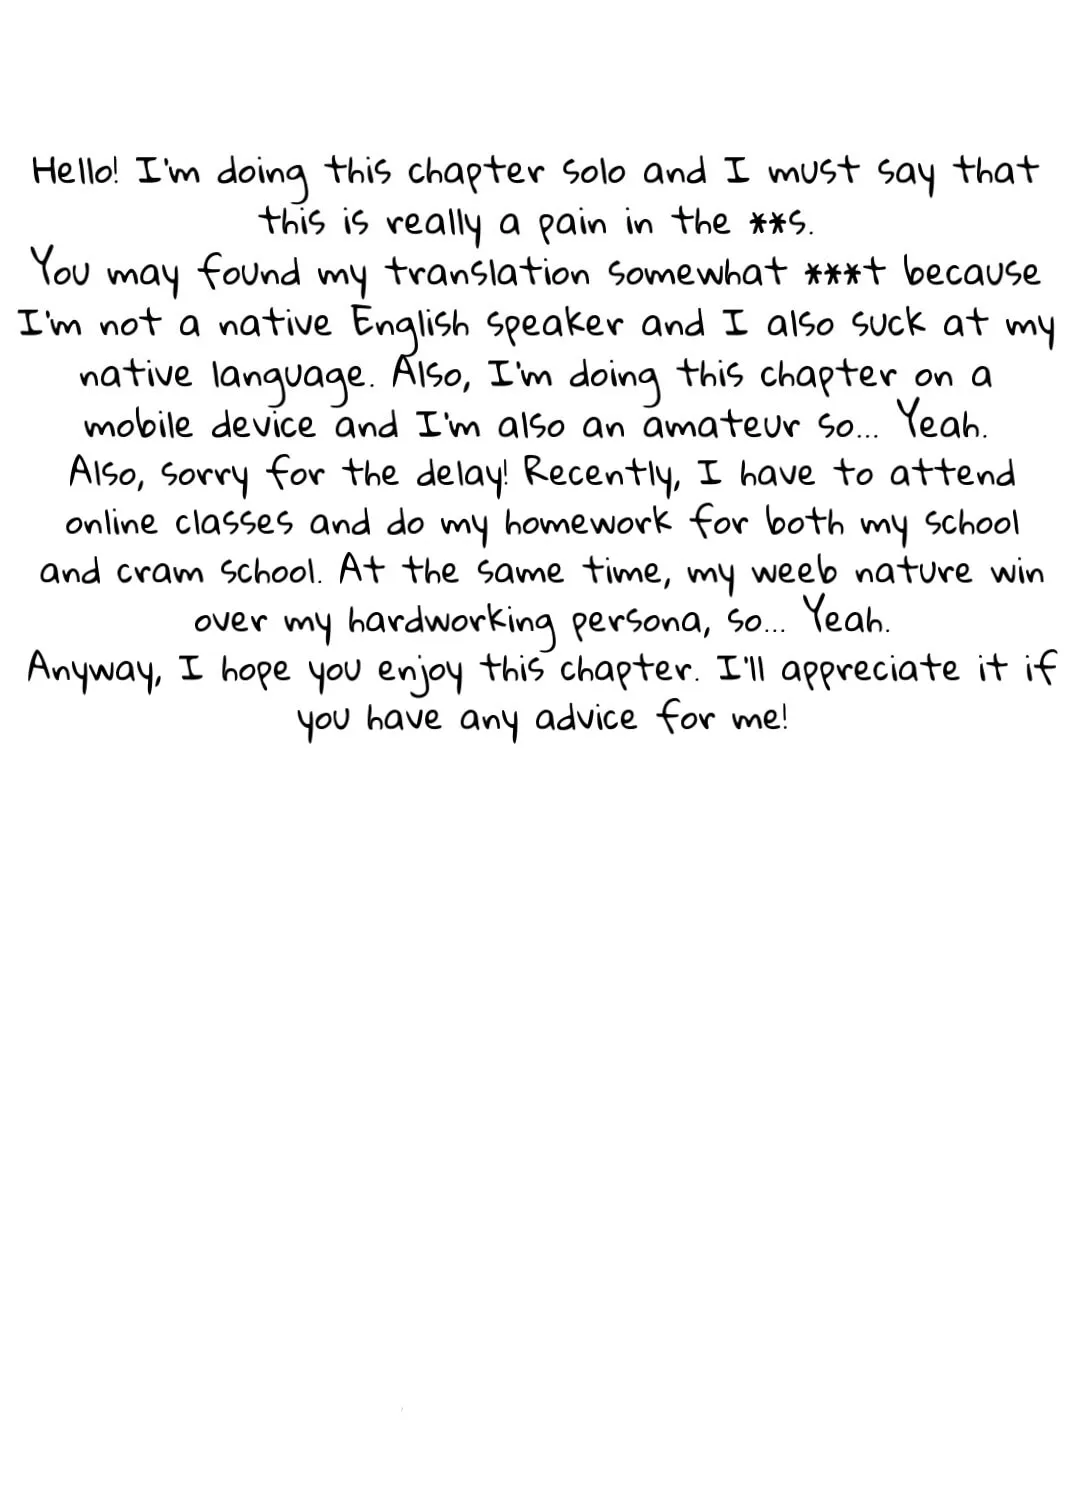 Hello! I'm doing this chapter solo and I must say that
this is really a pain in the **s.
You may found my translation somewhat ***t because
I'm not a native English speaker and I also suck at my
native language. Also, I'm doing this chapter on a
mobile device and I'm also an amateur so... Yeah.
Also, sorry for the delay! Recently, I have to attend
online classes and do my homework for both my school
and cram school. At the same time, my weeb nature win
over my hardworking persona, so... Yeah.
Anyway, I hope you enjoy this chapter. I'll appreciate it if
you have any advice for me!